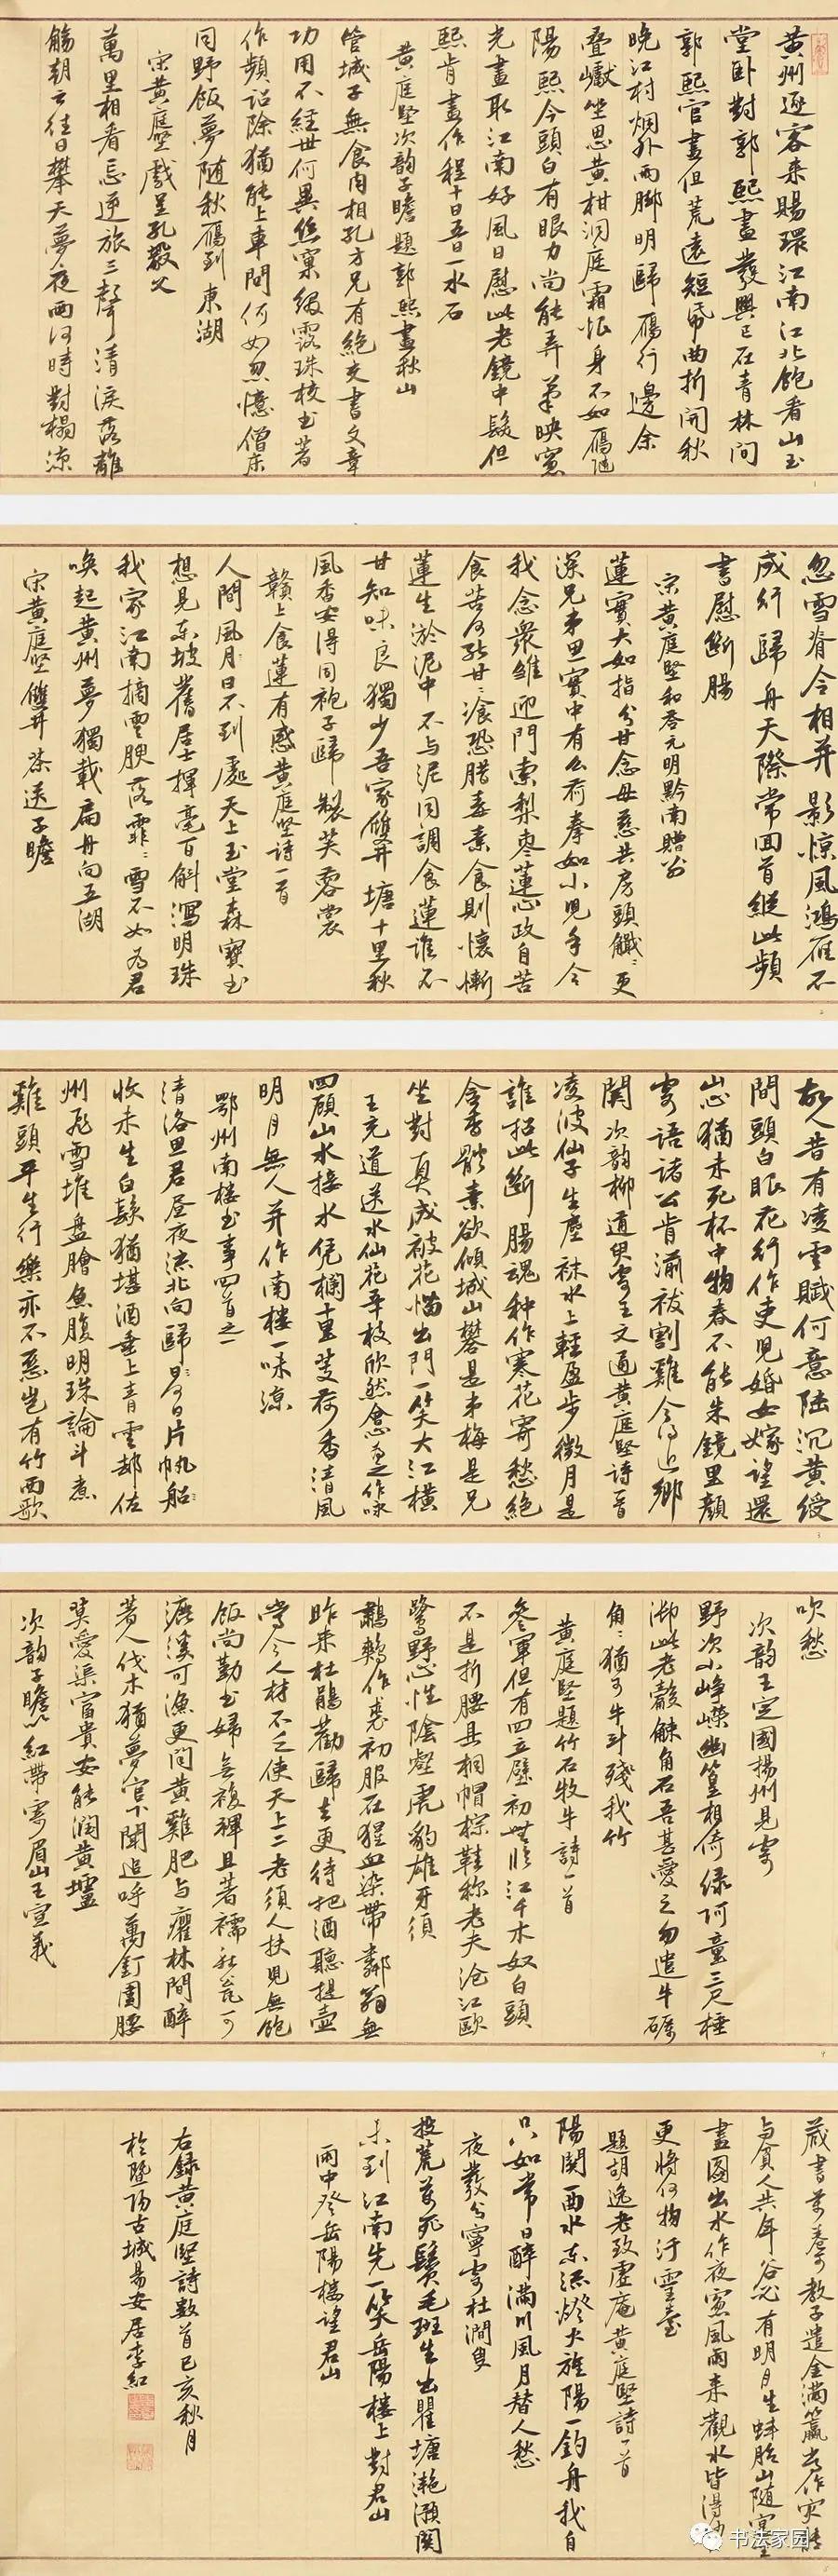 黄州逐客未賜環江南江北飽看山玉
堂卧對郭熙畫發興已在青林間
郭熙官畫但荒遠短帋曲折開秋
晚江村烟外雨脚明歸雁行邊余
疊巘坐思黄柑洞庭霜恨身不如雁隨
陽熙今頭白有眼力尚能弄筆映窻
光畫取江南好風日慰此老鏡中髮但
熙肯畫作程十日五日一水石
黄庭堅次韵子瞻題郭熙畫秋山
管城子無食肉相孔方兄有絶交書文章
功用不經世何異絲窠綴露珠校书著
作頻詔除猶能上車問何如忽憶僧床
同野飯夢随秋雁到東湖
宋黄庭堅戲呈孔毅父
萬里相看忘逆旅三聲清淚落離
觴朝云往日攀天夢夜雨何時對榻涼
忽雪脊令相并影惊風鴻雁不
成行歸舟天際常回首縱此頻
書慰斷腸
宋黄庭堅和答元明黔南贈别
蓮實大如指分甘念母慈共房頭觽〻更
深兄弟思實中有幺荷拳如小児手令
我念衆雛迎門索梨枣蓮心政自苦
食苦何能甘〻飡恐腊毒素食則懷慚
蓮生淤泥中不与泥同調食蓮誰不
甘知味良獨少吾家雙井塘十里秋
風香安得同袍子歸製芙蓉裳
贛上食蓮有感黄庭堅詩一首
人間風月日不到處天上玉堂森寶书
想見东坡舊居士揮毫百斛瀉明珠
我家江南摘雲腴落霏〻雪不如为君
唤起黄州夢獨載扁舟向五湖
宋黄庭堅雙井茶送子瞻
故人昔有凌雲賦何意陆沉黄綬
間頭白眼花行作吏児婚女嫁望還
山心猶未死杯中物春不能朱鏡里顏
寄語諸公肯湔祓割雞今得近鄉
関次韵柳通叟寄王文通黄庭堅詩一首
凌波仙子生塵袜水上輕盈步微月是
誰招此斷腸魂种作寒花寄愁絶
含香體素欲傾城山礬是弟梅是兄
坐對真成被花惱出門一笑大江横
王充道送水仙花五十枝欣然會心为之作咏
四顧山水接水凭欄十里芰荷香清風
明月無人并作南樓一味涼
鄂州南楼书事四首之一
清洛思君昼夜流北向歸〻何日片帆船
收未生白鬚猶堪酒垂上青雲却佐
州飛雪堆盘膾魚腹明珠論斗煮
雞頭平生行樂亦不惡岂有竹西歌
吹愁
次韵王定國揚州見寄
野次小峥嶸幽篁相倚绿阿童三尺棰
御此老觳觫角石吾甚愛之勿遣牛礪
角〻猶可牛斗殘我竹
黄庭堅題竹石牧牛詩一首
参軍但有四立壁初無临江千木奴白頭
不是折腰具桐帽棕鞋称老夫沧江鸥
鹭野心性陰壑虎豹雄牙須
鸘鷞作裘初服在猩血染帶鄰翁無
昨来杜鵑勸歸去更待把酒聽提壶
當今人材不乏使天上二老須人扶児無飽
飯尚勤书婦無複褌且著襦社瓮可
漉溪可漁更问黄雞肥与癯林間醉
著人伐木猶夢官下聞追呼萬釘圍腰
莫愛渠富貴安能润黄壚
次韵子瞻以紅帶寄眉山王宣義
蔵書万卷可教子遺金滿籯常作灾能
与貧人共年谷必有明月生蚌胎山随宴坐
畫圖出水作夜窻風雨来觀水皆得妙
更將何物汙靈臺
題胡逸老致虚庵黄庭堅詩一首
陽関一西水东流燈火旌陽一釣舟我自
只如常日醉滿川風月替人愁
夜發分寧寄杜澗叟
投荒萬死鬢毛班生出瞿塘灩滪関
未到江南先一笑岳陽樓上對君山
雨中登岳陽楼望君山
右録黄庭堅詩数首己亥秋月
於曁陽古城易安居李红
书法家园